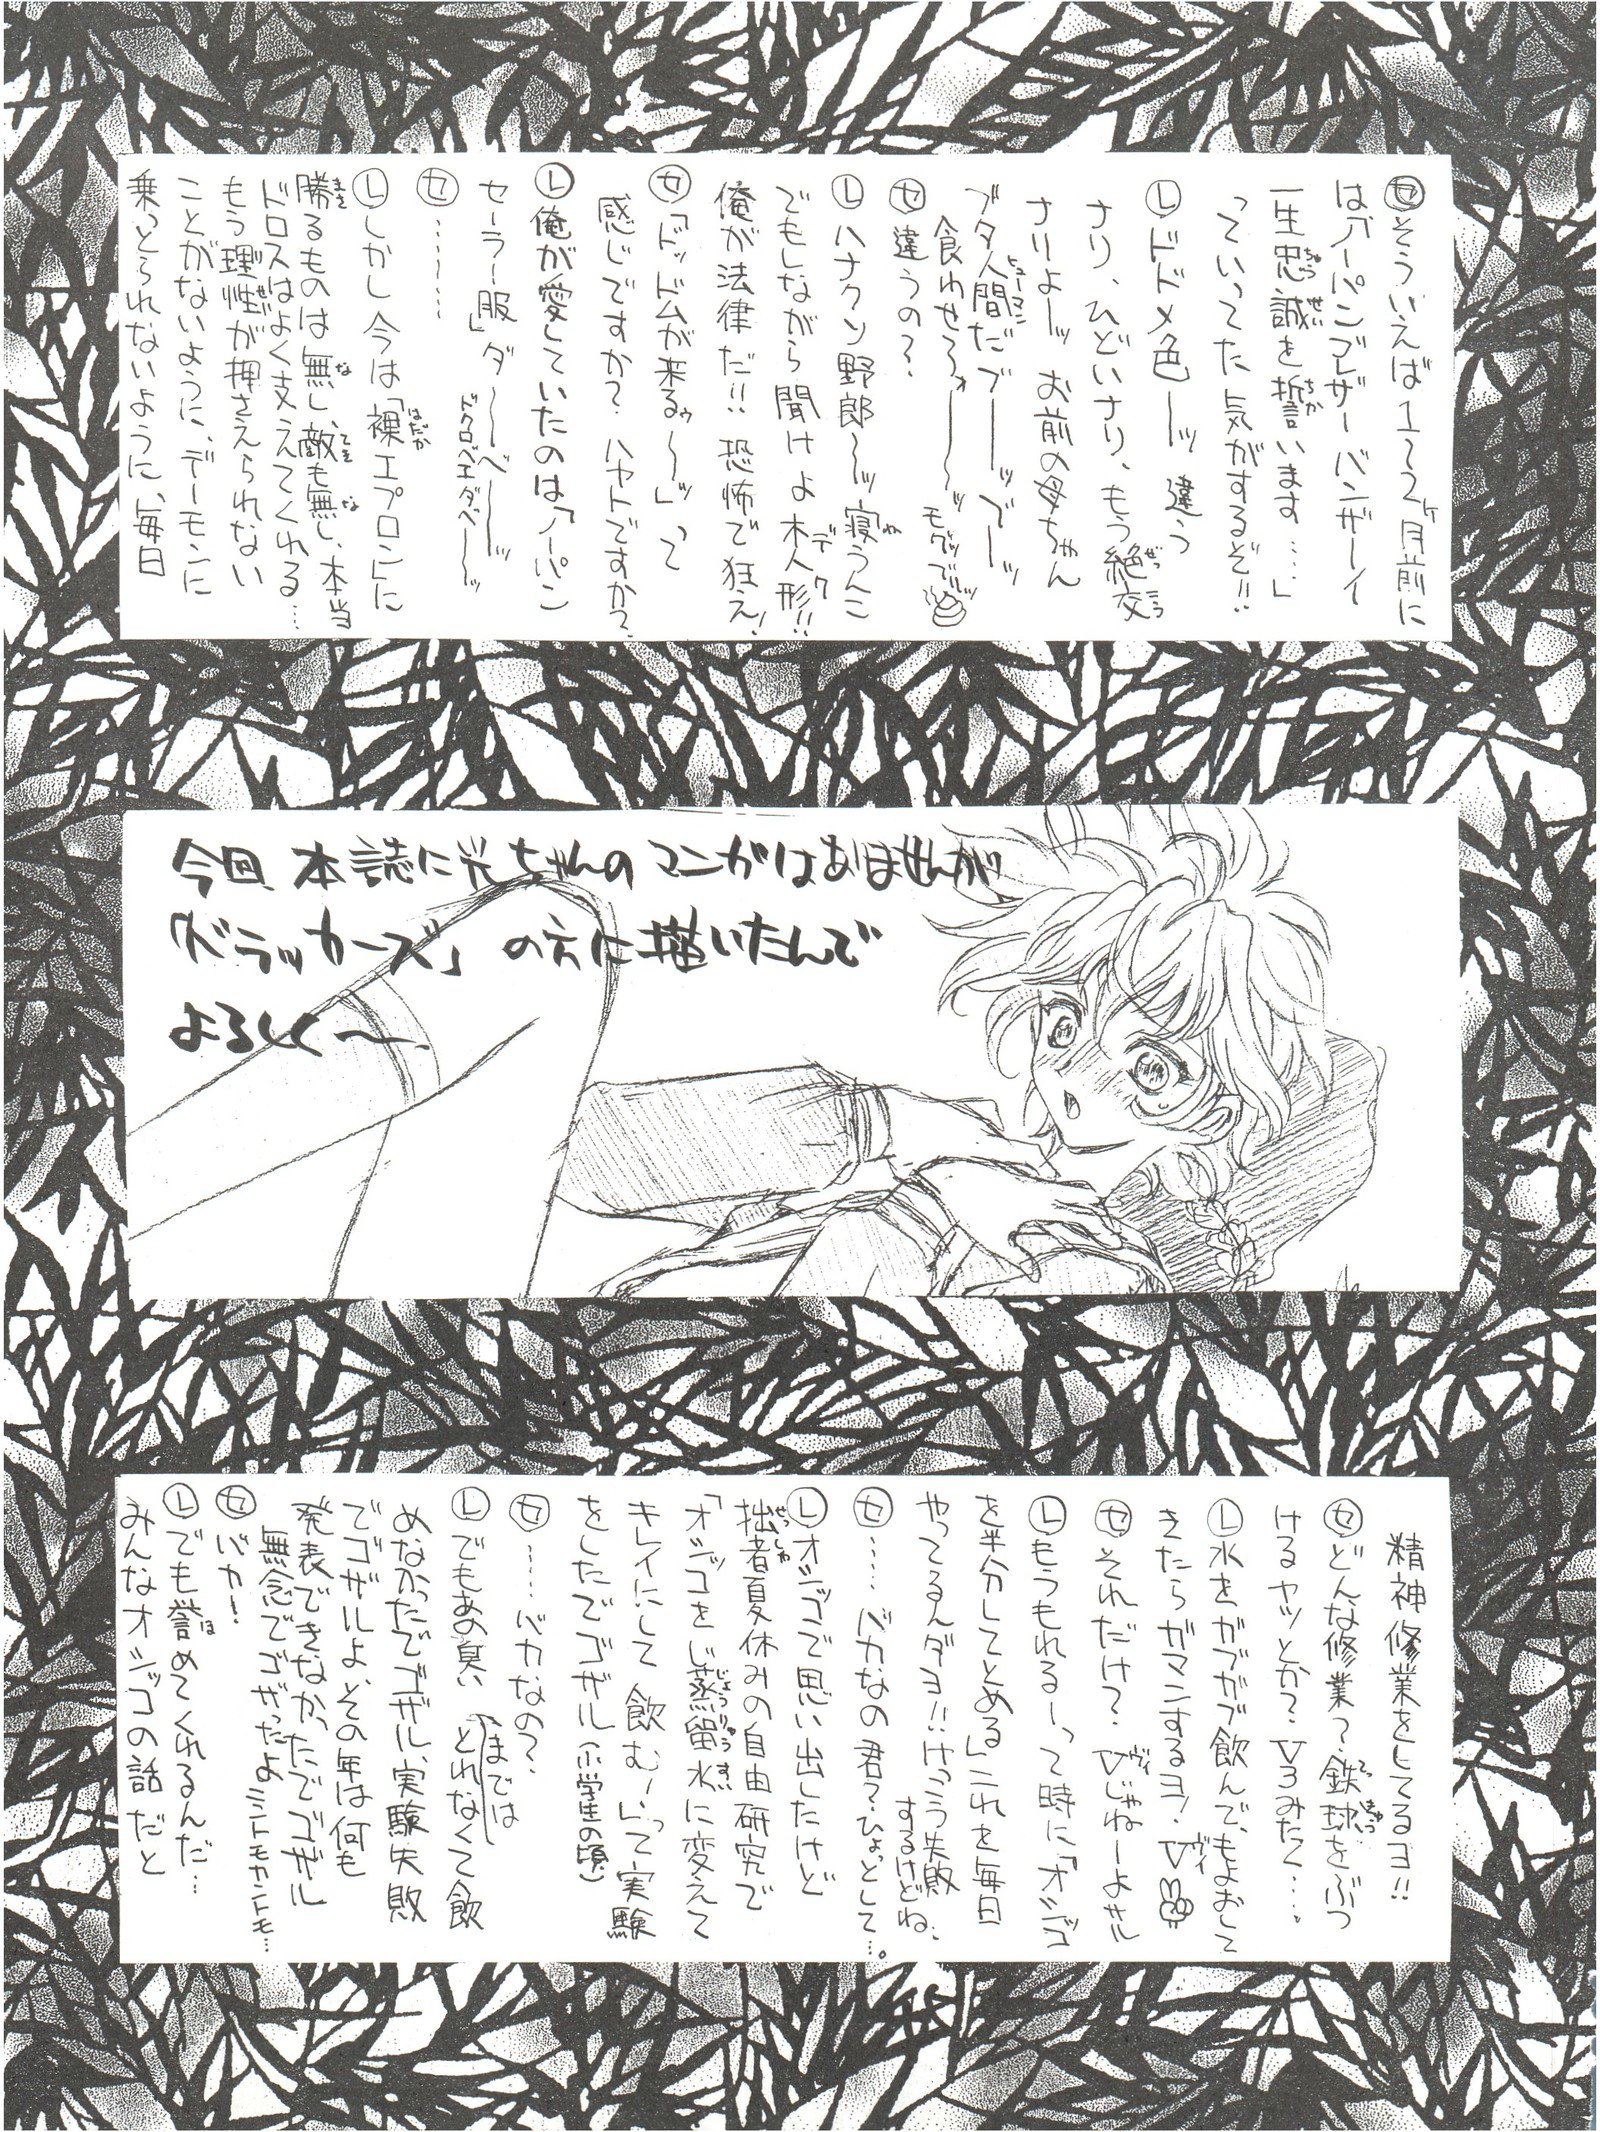 ㋝そういえば1〜2ヶ月前に
は、「ノーパンブレザーバンザーイ
一生忠誠を誓います……」
っていってた気がするぞ!!
Ⓛドドメ色ーッ違う
ナリ、ひどいナリ、もう絶交
ナリよーッ お前の母ちゃん
ブタ人間だブーーッブーーッ
食わせろォーーーッ モグッブリッ
㋝違うの?
Ⓛハナクソ野郎〜ッ寝うんこ
でもしながら聞けよ木人形!!
俺が法律だ!!恐怖で狂え!
㋝「ドッドムが来るゥ〜ッ」って
感じですか?ハヤトですか?
Ⓛ俺が愛していたのは「ノーパン
セーラー服」ダ〜〜ベ〜〜ッ
ドクロベエダベ〜ッ
㋝…………
Ⓛしかし今は「裸エプロン」に
勝るものは無し、敵も無し、本当
ドロスはよく支えてくれる…
もう理性が押さえられない
ことがないように、デーモンに
乗っとられないように、毎日
今回、本誌に光ちゃんのマンガはありませんが、
「ドラッカーズ」の方に描いたんで
よろしく〜、
精神修業をしてるヨ!!
㋝どんな修業?鉄球をぶつ
けるヤツとか?V3みたく…
Ⓛ水をガブガブ飲んで、もよおして
きたらガマンするヨ!V
㋝それだけ?Vじゃねーよサル
Ⓛもうもれるーって時に、「オシッコ
を半分してとめる」これを毎日
やってるんダヨ!!けっこう失敗
するけどね、
㋝……バカなの君?ひょっとして…。
Ⓛオシッコで思い出したけど
拙者夏休みの自由研究で
「オシッコをじ蒸留水に変えて
キレイにして飲むー」って実験
をしたでゴザル(小学生の頃)
㋝……バカなの?
Ⓛでもあの臭いまではとれなくて飲
めなかったでゴザル、実験失敗
でゴザルよ、その年は何も
発表できなかったでゴザル
無念でゴザったよニントモカントモ…
㋝バカー!
Ⓛでも誉めてくれるんだ…
みんなオシッコの話だと